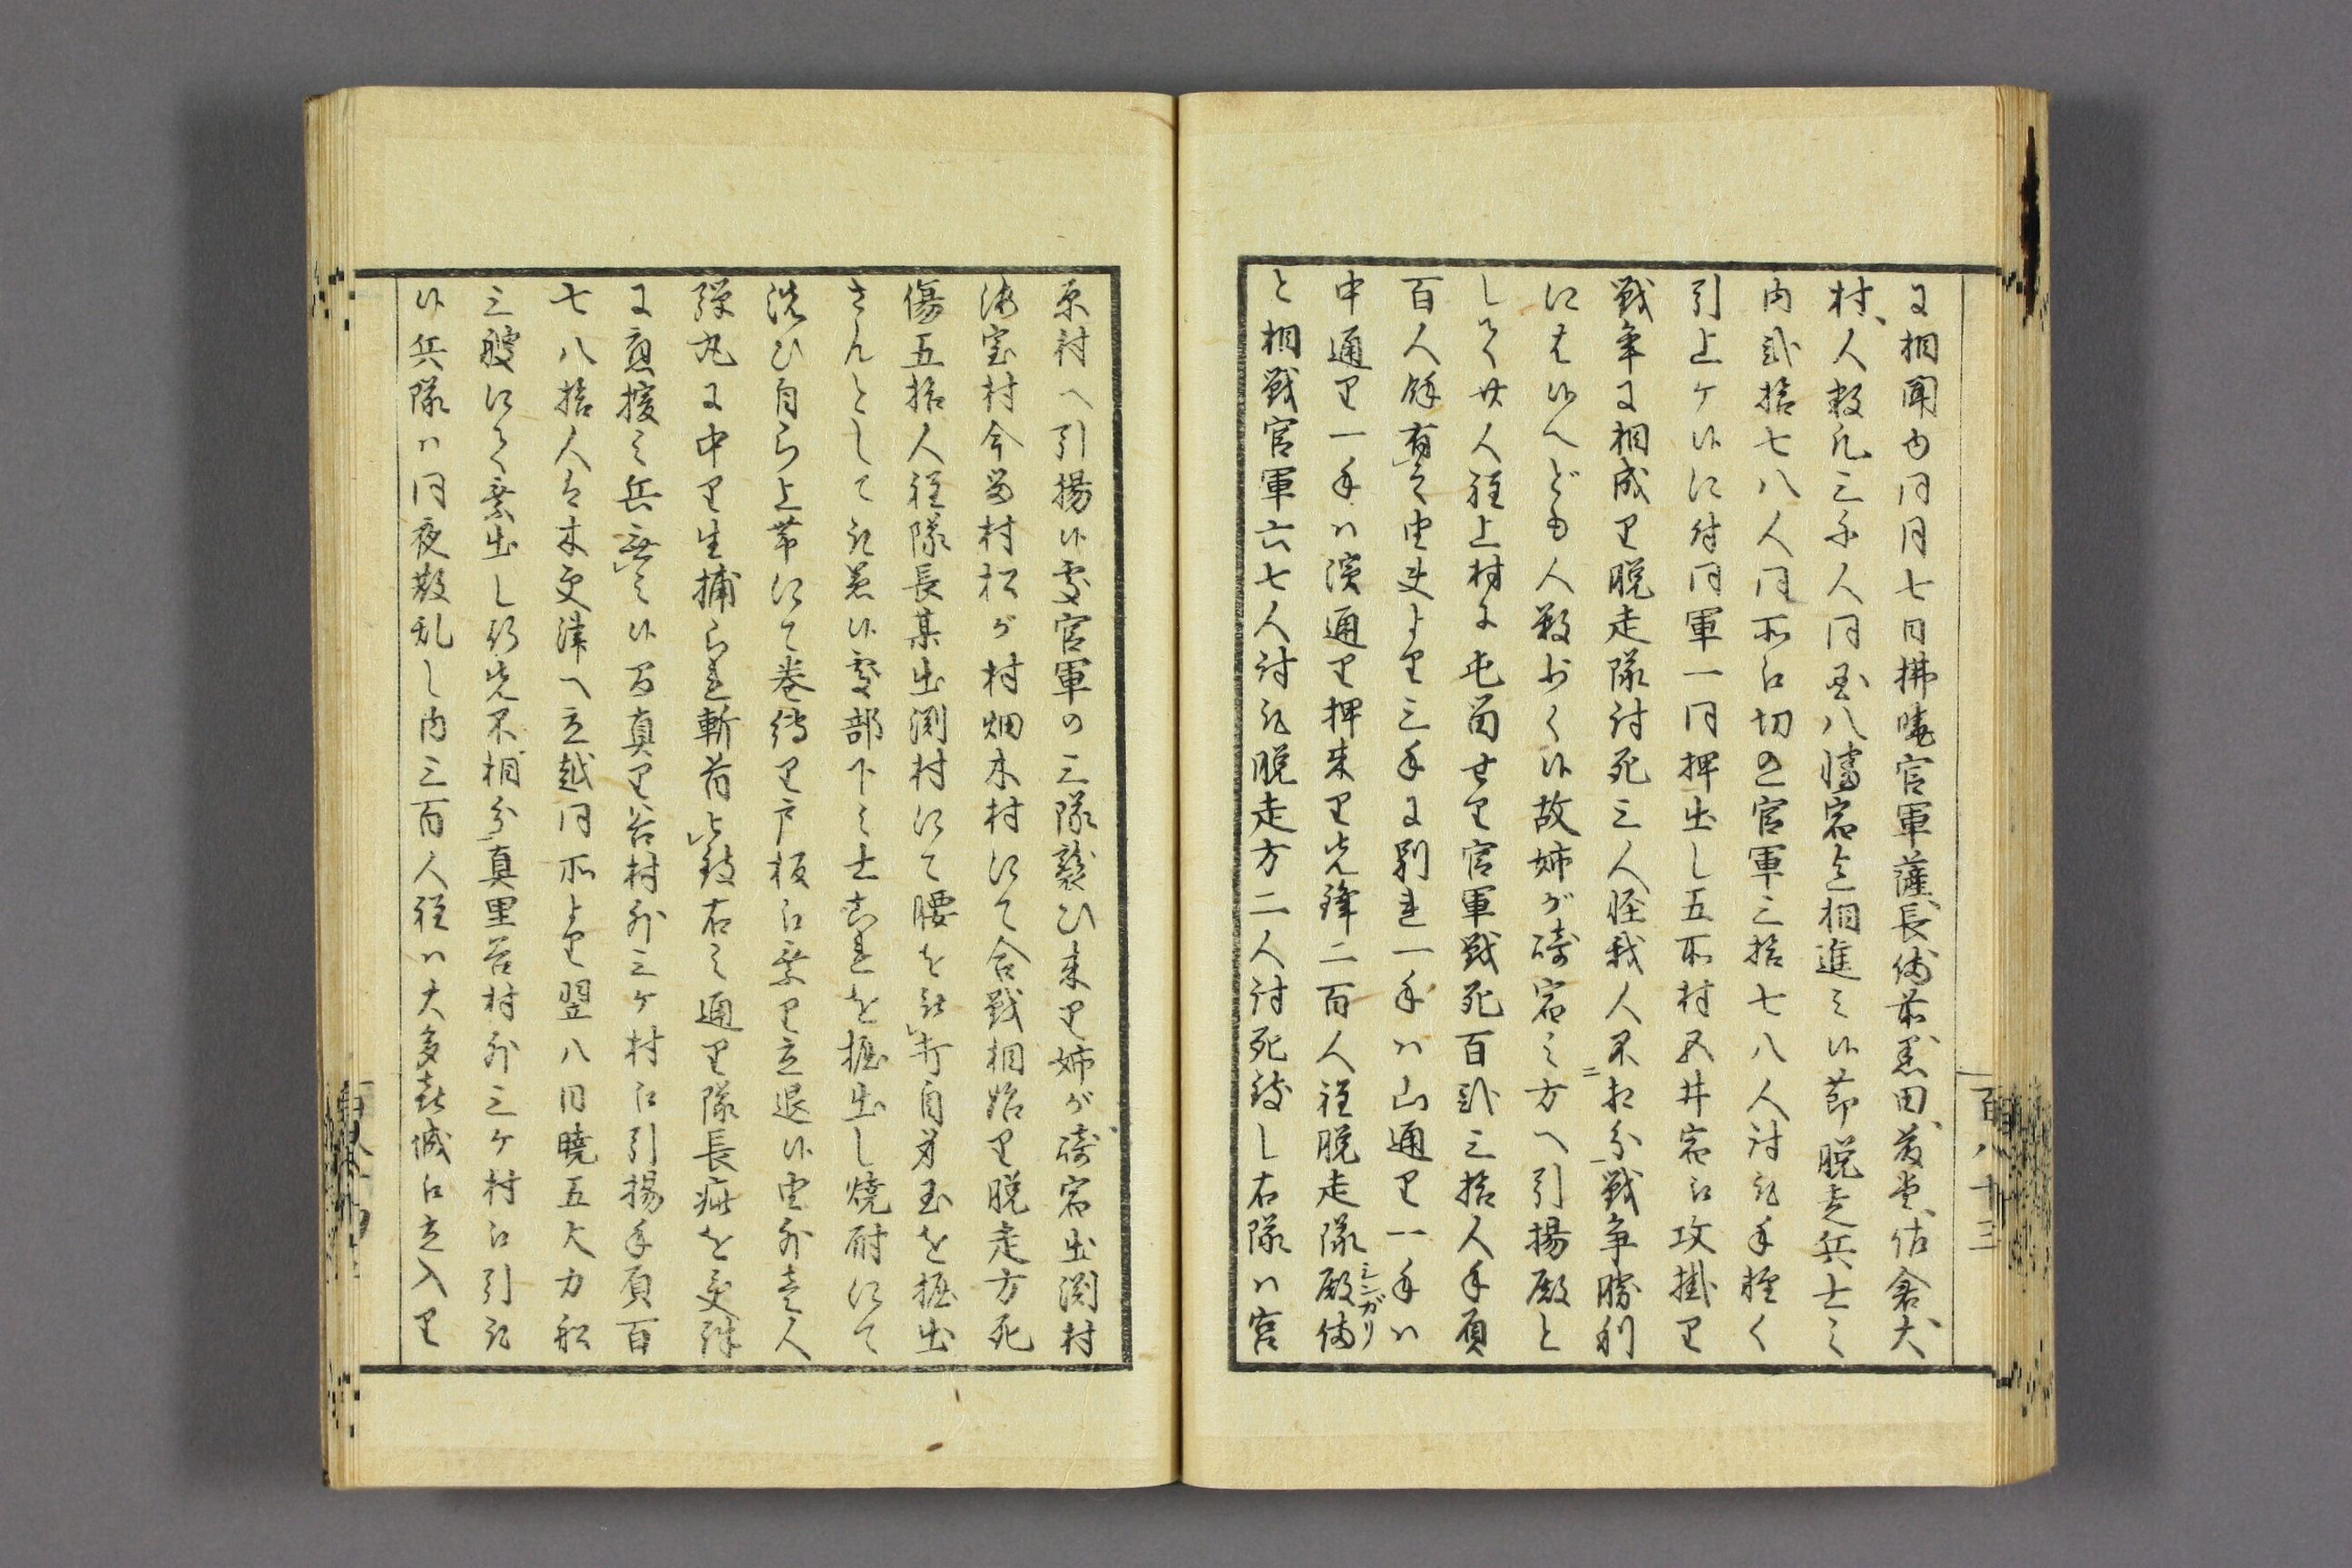 に相聞申候同月七日拂暁官軍薩、長、備前、黒田、藤堂、佐倉、大
村、人数凡三千人同國八幡宿迄相進ミ候節脱走兵士之
内貳拾七八人同所江切込官軍三拾七八人討取手軽く
引上ケ候に付同軍一同押出し五所村五井宿江攻掛り
戦争に相成り脱走隊討死三人怪我人不相分戦争勝利
にハ候へども人数少く候故姉ヶ崎宿之方へ引揚殿と
して廿人程上村に屯留せり官軍戦死百貳三拾人手負
百人餘有之由夫より三手に別れ一手ハ山通り一手ハ
中通り一手ハ濱通り押来り先鋒二百人程脱走隊殿備
シンガリ
と相戦官軍六七人討取脱走方二人討死致し右隊ハ宮
百八十三
原村へ引揚候處官軍の三隊襲ひ来り姉ヶ崎宿出渕村
海宝村今留村松ヶ村畑木村にて合戦相始り脱走方死
傷五拾人程隊長某出渕村にて腰を被打自身玉を掘出
さんとして取落候處部下之士これを掘出し焼酎にて
洗ひ自ら上帯にて巻縛り戸板江乗り立退候由外壱人
弾丸に中り生捕られ斬首ニ致右之通り隊長疵を受殊
に應援之兵無之候間真里谷村外三ケ村江引揚手負百
七八拾人は木更津へ立越同所より翌八日暁五大力船
三艘にて乗出し行先不相分真里谷村外三ケ村江引取
候兵隊ハ同夜散乱し内三百人程ハ大多喜城江立入り